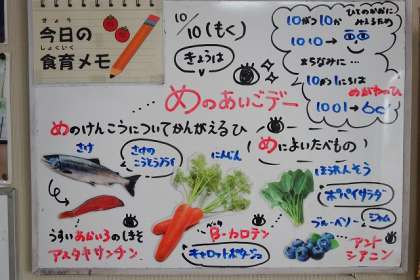 きょう
今日の
しょくいく
食育メモ
10/10(もく)
きょうは
ひとのかおに
みえるため
10がつ10か
1010→
ちなみに…
10がつ1にちは
めがねのひ
1001→
…めのあいごデー
めのけんこうについてかんがえるひ
めによいたべもの
さけ
さけの
こうそうフライ
うすいあかいろのしきそ
アスタキサンチン
にんじん
ベータ
β-カロテン
キャロットポタージュ
ほうれんそう
ポパイサラダ
ブルーベリー
ジャム
アント
シアニン